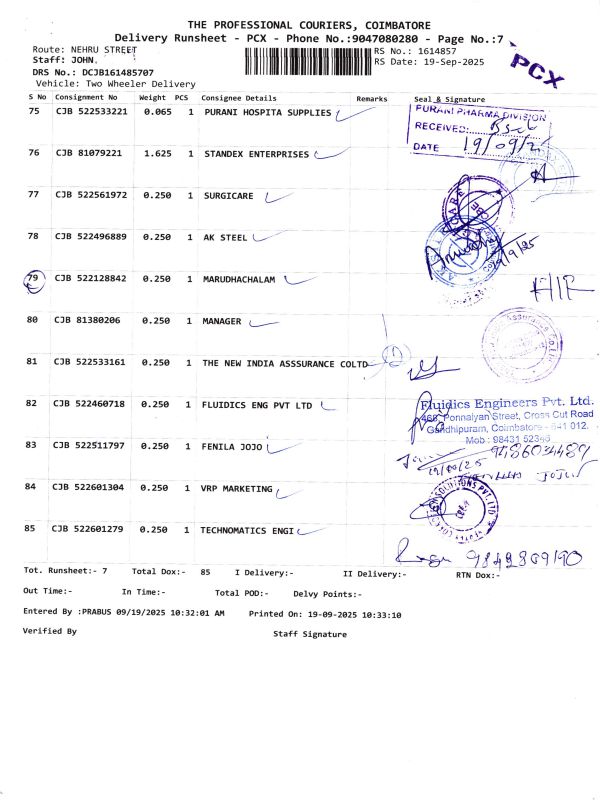 THE PROFESSIONAL COURIERS, COIMBATORE
Delivery Runsheet - PCX - Phone No.:9047080280 - Page No.:7
Route: NEHRU STREET
RS No.: 1614857
Staff: JOHN.
RS Date: 19-Sep-2025
DRS No.: DCJB161485707
Vehicle: Two Wheeler Delivery
PCX
S No Consignment No Weight PCS Consignee Details Remarks Seal & Signature
75 CJB 522533221 0.065 1 PURANI HOSPITA SUPPLIES
PURANI PHARMA DIVISION
RECEIVED:
DATE 19/09/2
76 CJB 81079221 1.625 1 STANDEX ENTERPRISES
77 CJB 522561972 0.250 1 SURGICARE
78 CJB 522496889 0.250 1 AK STEEL
79 CJB 522128842 0.250 1 MARUDHACHALAM
80 CJB 81380206 0.250 1 MANAGER
81 CJB 522533161 0.250 1 THE NEW INDIA ASSSURANCE COLTD
82 CJB 522460718 0.250 1 FLUIDICS ENG PVT LTD
Fluidics Engineers Pvt. Ltd.
468, Ponnaiyan Street, Cross Cut Road
Gandhipuram, Coimbatore - 641 012.
Mob : 98431 52345
83 CJB 522511797 0.250 1 FENILA JOJO
9486034489
19/09/25
JOJO
84 CJB 522601304 0.250 1 VRP MARKETING
85 CJB 522601279 0.250 1 TECHNOMATICS ENGI
9842869190
Tot. Runsheet:- 7 Total Dox:- 85 I Delivery:- II Delivery:- RTN Dox:-
Out Time:- In Time:- Total POD:- Delvy Points:-
Entered By :PRABUS 09/19/2025 10:32:01 AM Printed On: 19-09-2025 10:33:10
Verified By Staff Signature